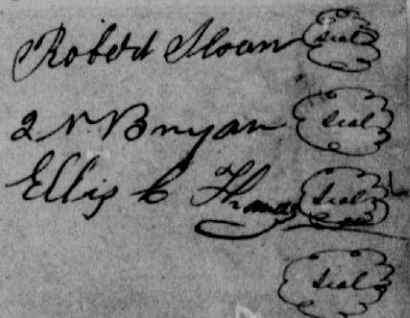 Robert Sloan Seal
N Bryan Seal
Ellis C Thomas Seal
Seal